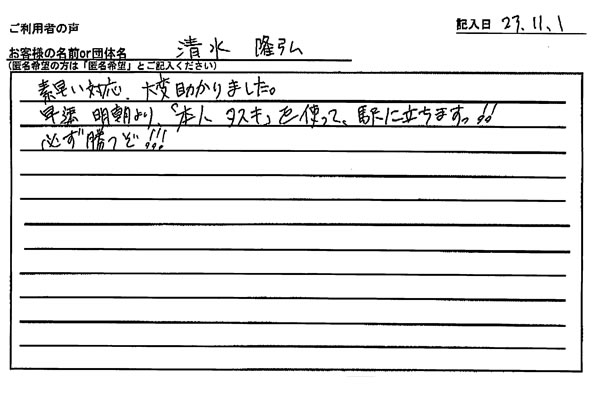 ご利用者の声
記入日 23.11.1
お客様の名前or団体名 清水 隆弘
(匿名希望の方は「匿名希望」とご記入ください)
素早い対応、大変助かりました。
早速 明朝より、「本人タスキ」を使って、駅に立ちますっ!!
必ず勝つぞ!!!